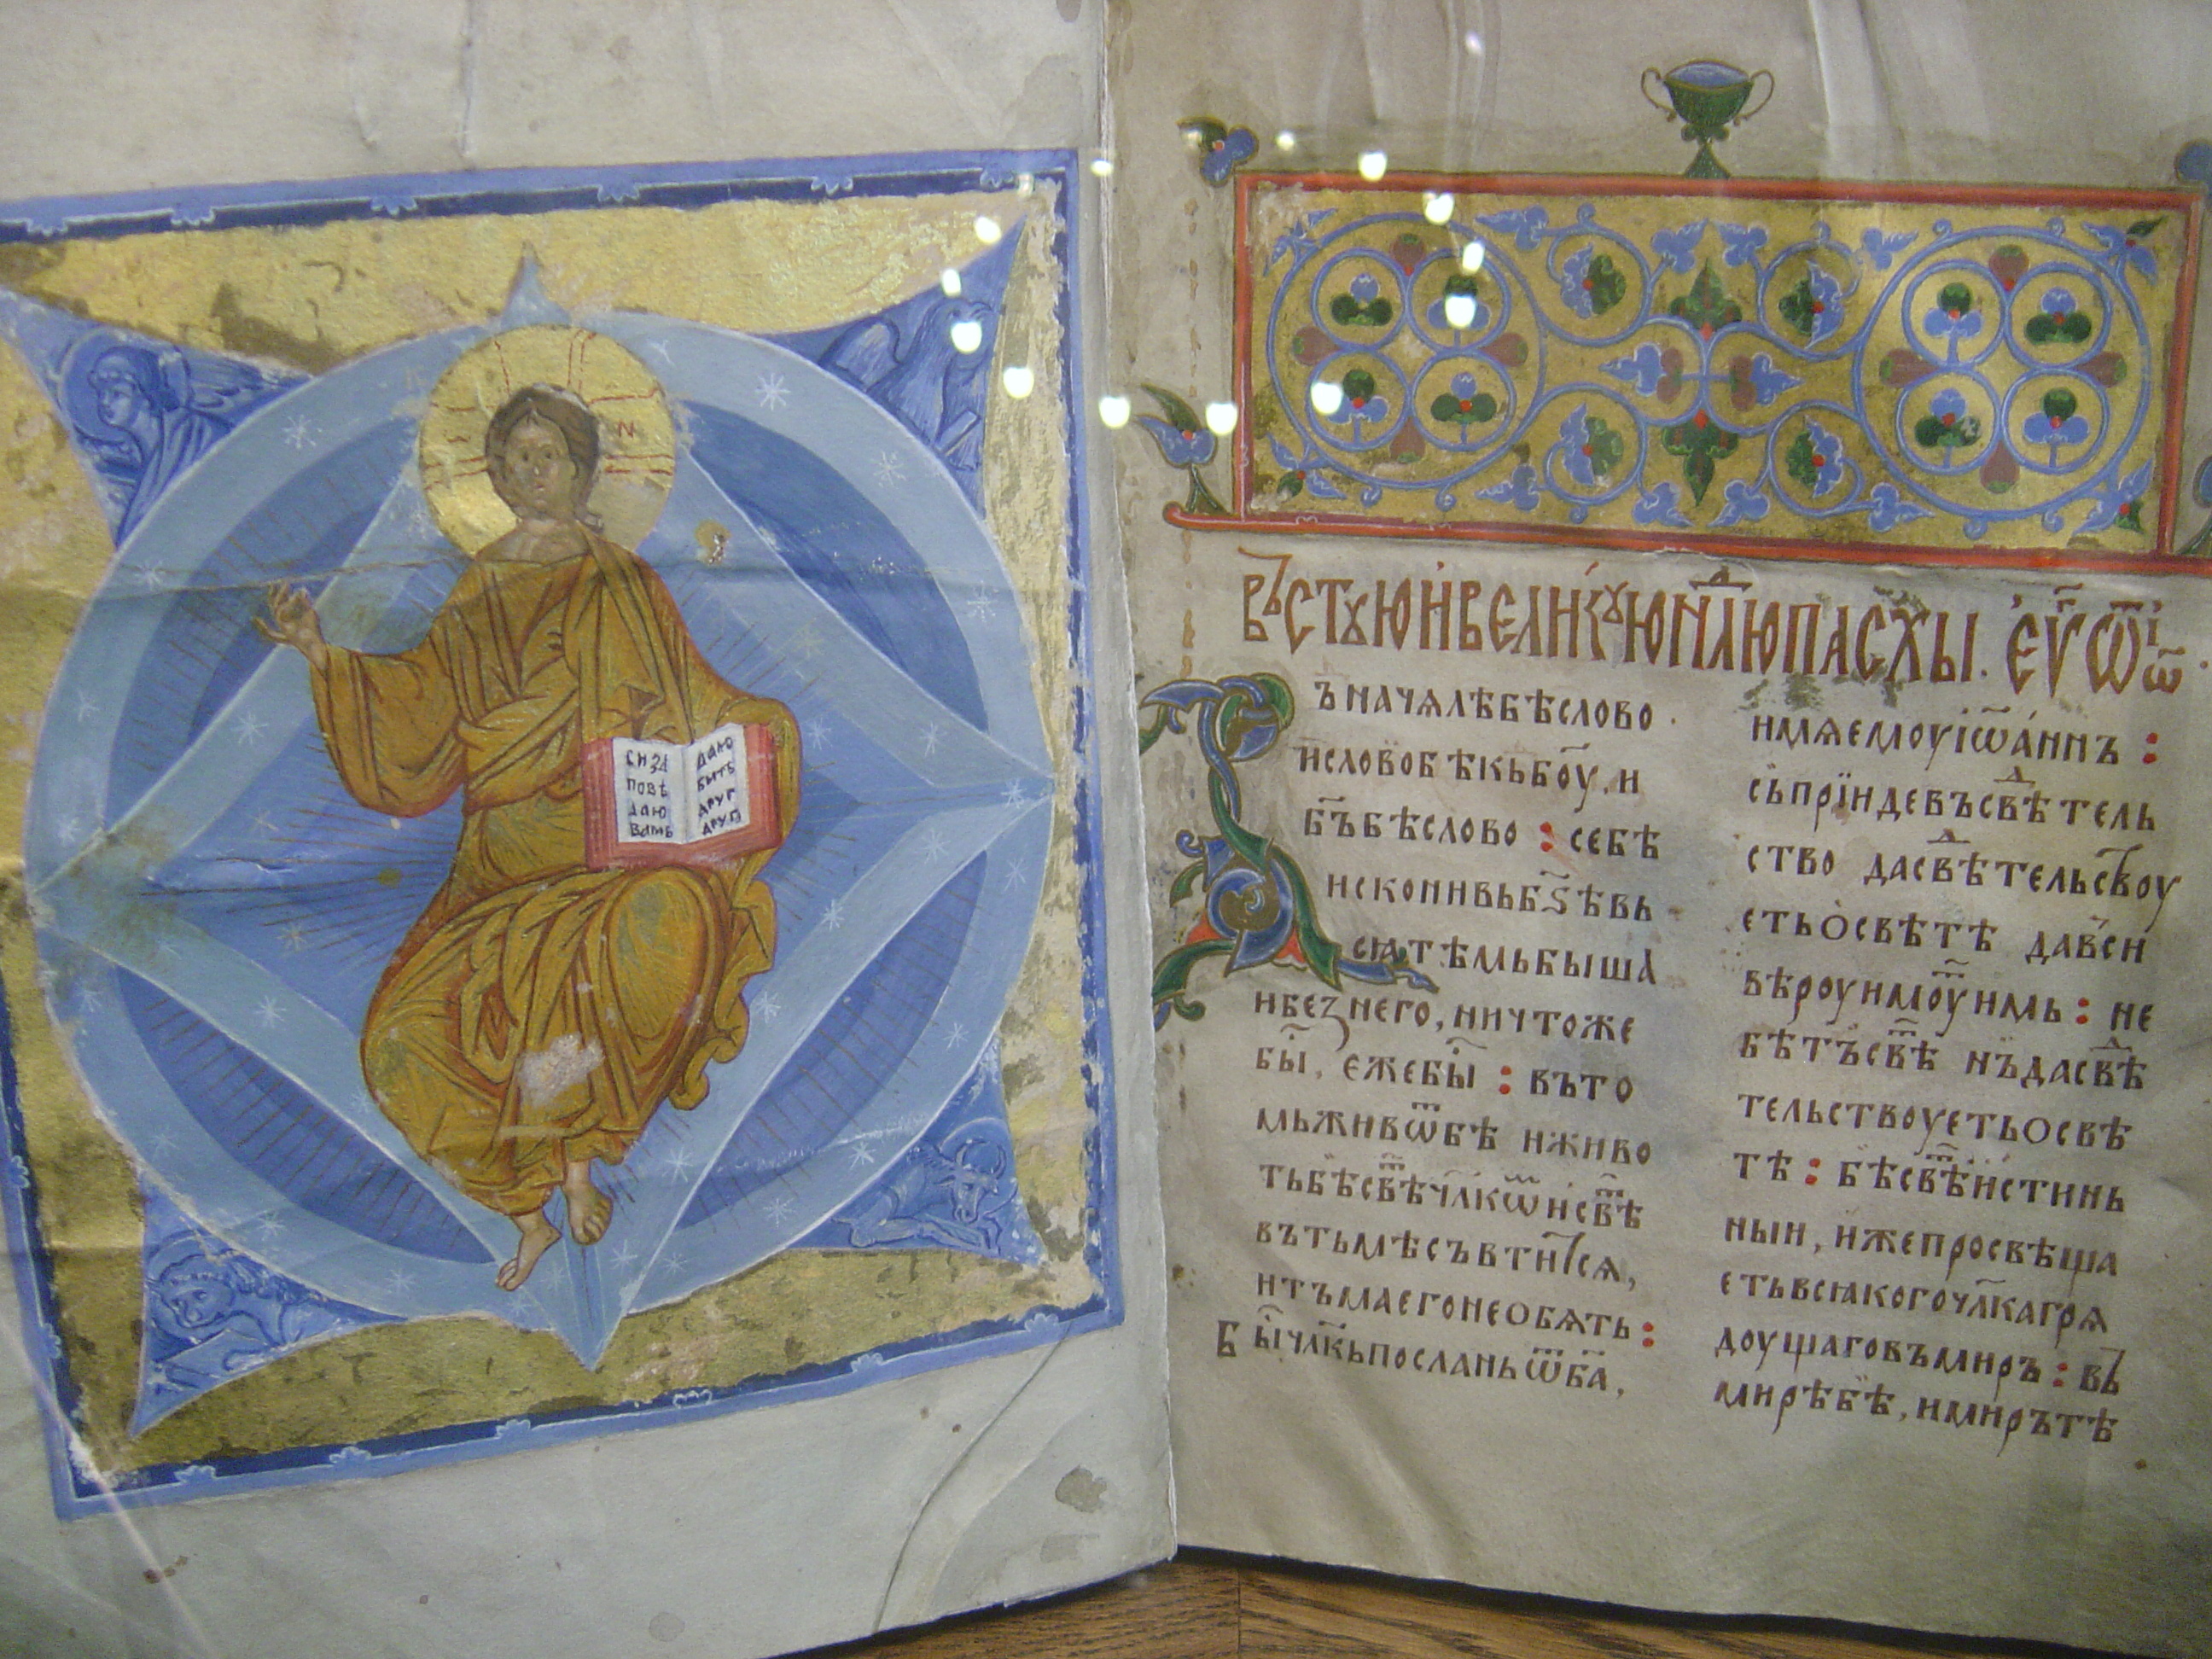 си за
повѣ
даю
вамь
даю
быть
друг
друг
въ стꙋю и великꙋю нд҃лю пасхы. еѵ҃ ѿ іѡ҃
ъначѧлѣбѣслово.
исловобѣкьбо҃у, и
бъ҃бѣслово : себѣ
исконивьбѕ҃ѣвь
сꙗтѣмьбыша
ибезнего, ничтоже
бы҃, ежебы҃ : въто
мьживѿбѣ иживо
тьбѣсвѣ҃чл҃кѿисвѣ҃
вътьмѣсъвтит҇сѧ,
итъмаегонеобѧть :
бы҃чл҃кьпосланьѿб҃а,
имѧемоуіѡ҃аннъ :
сьпрїидевъсвⷣѣтель
ство дасвⷣѣтельст҇воу
етьосвѣтѣ дав҇си
вѣроуимо҃уимь : не
бѣтъсвѣ҃ нъдасвⷣѣ
тельствоуетьосвѣ
тѣ : бѣсвѣ҃истинь
ныи, ижепросвѣща
етьвсꙗкогочл҃кагрѧ
доущаговъмиръ : въ
мирѣбѣ, имирътѣ